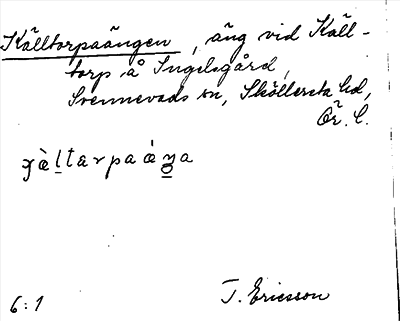 Källtorpaängen, äng vid Käll-
torp å Ingelsgård,
Svennevads sn, Sköllersta hd,
Ör. l.
T. Ericsson
6:1